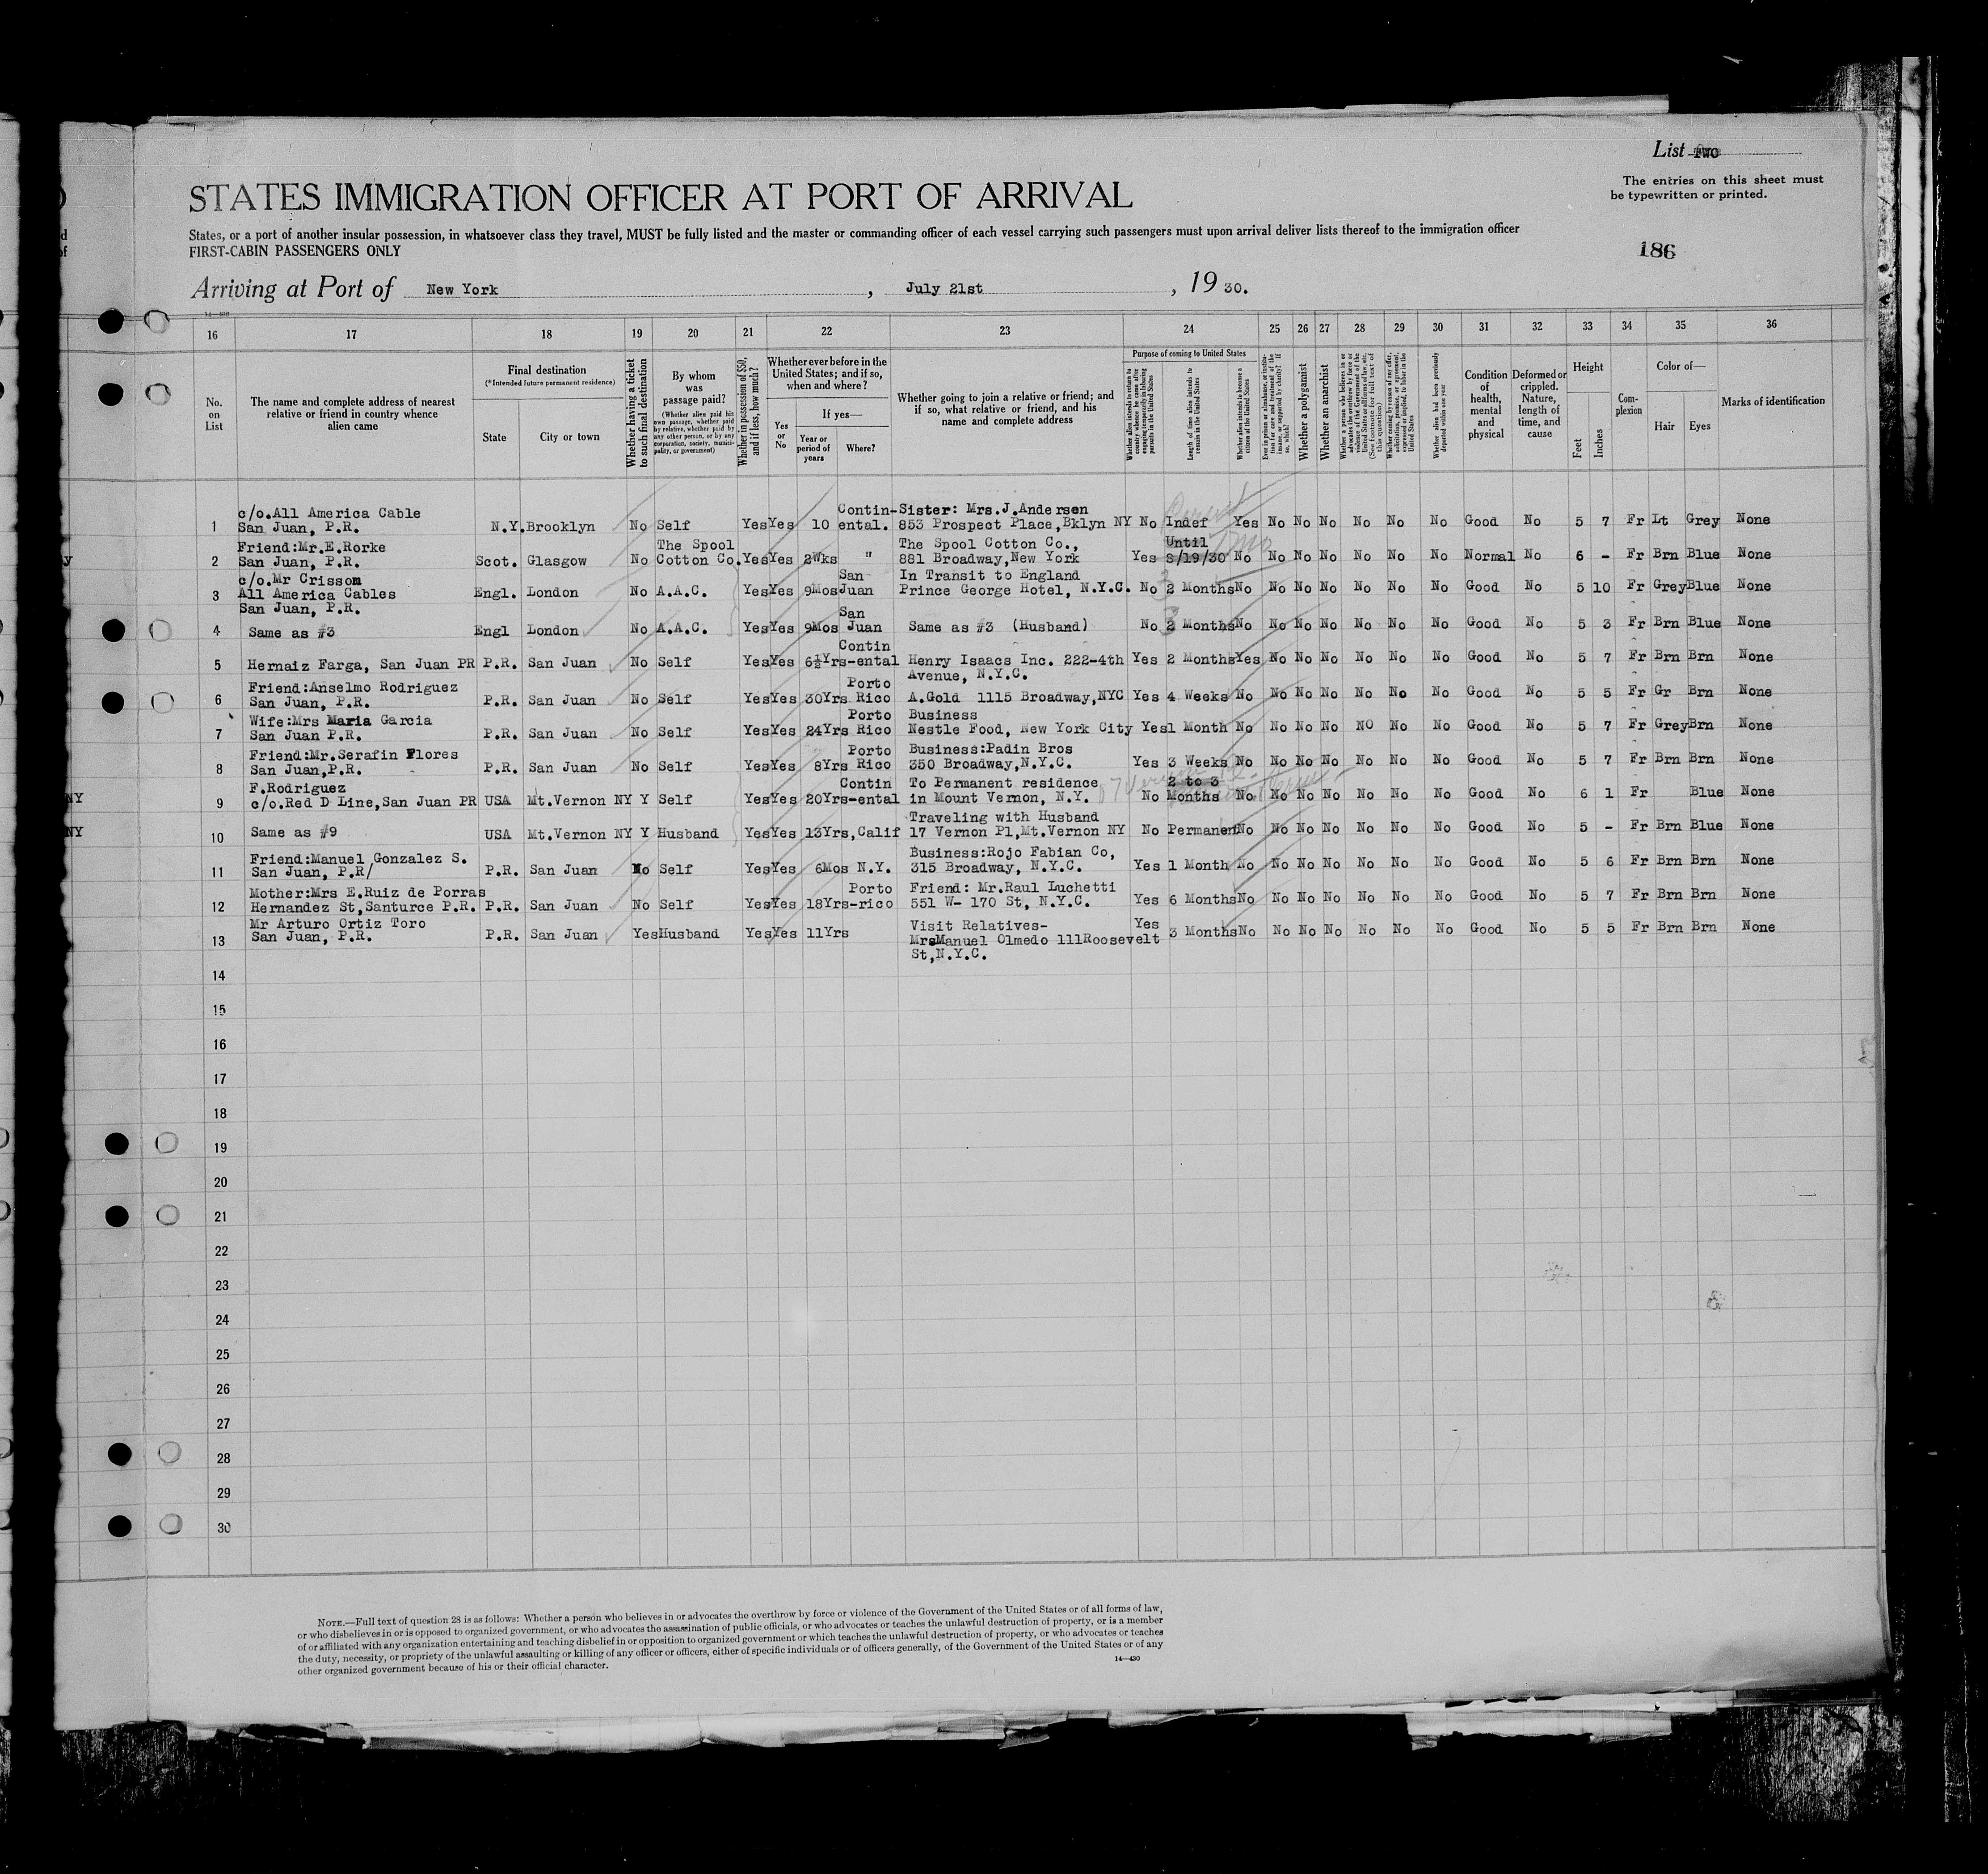 List TWO
The entries on this sheet must
be typewritten or printed.
STATES IMMIGRATION OFFICER AT PORT OF ARRIVAL
States, or a port of another insular possession, in whatsoever class they travel, MUST be fully listed and the master or commanding officer of each vessel carrying such passengers must upon arrival deliver lists thereof to the immigration officer
FIRST-CABIN PASSENGERS ONLY
186
Arriving at Port of New York, July 21st, 19 30.
16 17 18 19 20 21 22 23 24 25 26 27 28 29 30 31 32 33 34 35 36
No. on List
The name and complete address of nearest relative or friend in country whence alien came
Final destination
(*Intended future permanent residence)
State
City or town
Whether having a ticket to such final destination
By whom was passage paid?
(Whether alien paid his own passage, whether paid by relative, whether paid by any other person, or by any corporation, society, municipality, or government)
Whether in possession of $50, and if less, how much?
Whether ever before in the United States; and if so, when and where?
Yes or No
If yes—
Year or period of years
Where?
Whether going to join a relative or friend; and if so, what relative or friend, and his name and complete address
Purpose of coming to United States
Whether alien intends to return to country whence he came after engaging temporarily in laboring pursuits in the United States
Length of time alien intends to remain in the United States
Whether alien intends to become a citizen of the United States
Ever in prison or almshouse, or institution for care and treatment of the insane, or supported by charity? If so, which?
Whether a polygamist
Whether an anarchist
Whether a person who believes in or advocates the overthrow by force or violence of the Government of the United States or all forms of law, etc. (See footnote for full text of this question)
Whether coming by reason of any offer, solicitation, promise, or agreement, expressed or implied, to labor in the United States
Whether alien had been previously deported within one year
Condition of health, mental and physical
Deformed or crippled. Nature, length of time, and cause
Height
Feet
Inches
Complexion
Color of—
Hair
Eyes
Marks of identification
c/o.All America Cable Contin-Sister: Mrs.J.Andersen
1 San Juan, P.R. N.Y.Brooklyn No Self Yes Yes 10 ental. 853 Prospect Place,Bklyn NY No Indef Yes No No No No No No Good No 5 7 Fr Lt Grey None
Friend:Mr.E.Rorke The Spool The Spool Cotton Co., Until
2 San Juan, P.R. Scot. Glasgow No Cotton Co. Yes Yes 2Wks " 881 Broadway,New York Yes 8/19/30 No No No No No No No Normal No 6 - Fr Brn Blue None
c/o.Mr Crissom San In Transit to England
3 All America Cables Engl. London No A.A.C. Yes Yes 9Mos Juan Prince George Hotel, N.Y.C. No 2 Months No No No No No No No Good No 5 10 Fr Grey Blue None
San Juan, P.R. San
4 Same as #3 Engl London No A.A.C. Yes Yes 9Mos Juan Same as #3 (Husband) No 2 Months No No No No No No No Good No 5 3 Fr Brn Blue None
Contin
5 Hernaiz Farga, San Juan PR P.R. San Juan No Self Yes Yes 6½Yrs-ental Henry Isaacs Inc. 222-4th Yes 2 Months Yes No No No No No No Good No 5 7 Fr Brn Brn None
Avenue, N.Y.C.
Friend:Anselmo Rodriguez Porto
6 San Juan, P.R. P.R. San Juan No Self Yes Yes 30Yrs Rico A.Gold 1115 Broadway,NYC Yes 4 Weeks No No No No No No No Good No 5 5 Fr Gr Brn None
Wife:Mrs Maria Garcia Porto Business
7 San Juan P.R. P.R. San Juan No Self Yes Yes 24Yrs Rico Nestle Food, New York City Yes 1 Month No No No No NO No No Good No 5 7 Fr Grey Brn None
Friend:Mr.Serafin Flores Porto Business:Padin Bros
8 San Juan,P.R. P.R. San Juan No Self Yes Yes 8Yrs Rico 350 Broadway,N.Y.C. Yes 3 Weeks No No No No No No No Good No 5 7 Fr Brn Brn None
F.Rodriguez Contin To Permanent residence 2 to 3
NY 9 c/o.Red D Line,San Juan PR USA Mt.Vernon NY Y Self Yes Yes 20Yrs-ental in Mount Vernon, N.Y. No Months No No No No No No No Good No 6 1 Fr Blue None
Traveling with Husband
NY 10 Same as #9 USA Mt.Vernon NY Y Husband Yes Yes 13Yrs,Calif 17 Vernon Pl,Mt.Vernon NY No Permanen No No No No No No No Good No 5 - Fr Brn Blue None
Friend:Manuel Gonzalez S. Business:Rojo Fabian Co,
11 San Juan, P.R/ P.R. San Juan No Self Yes Yes 6Mos N.Y. 315 Broadway, N.Y.C. Yes 1 Month No No No No No No No Good No 5 6 Fr Brn Brn None
Mother:Mrs E.Ruiz de Porras Porto Friend: Mr.Raul Luchetti
12 Hernandez St,Santurce P.R. P.R. San Juan No Self Yes Yes 18Yrs-rico 551 W- 170 St, N.Y.C. Yes 6 Months No No No No No No No Good No 5 7 Fr Brn Brn None
Mr Arturo Ortiz Toro Visit Relatives- Yes
13 San Juan, P.R. P.R. San Juan Yes Husband Yes Yes 11Yrs MrsManuel Olmedo 111Roosevelt 3 Months No No No No No No No Good No 5 5 Fr Brn Brn None
St,N.Y.C.
14
15
16
17
18
19
20
21
22
23
24
25
26
27
28
29
30
NOTE.—Full text of question 28 is as follows: Whether a person who believes in or advocates the overthrow by force or violence of the Government of the United States or of all forms of law,
or who disbelieves in or is opposed to organized government, or who advocates the assassination of public officials, or who advocates or teaches the unlawful destruction of property, or is a member
of or affiliated with any organization entertaining and teaching disbelief in or opposition to organized government or which teaches the unlawful destruction of property, or who advocates or teaches
the duty, necessity, or propriety of the unlawful assaulting or killing of any officer or officers, either of specific individuals or of officers generally, of the Government of the United States or of any
other organized government because of his or their official character.
14—430